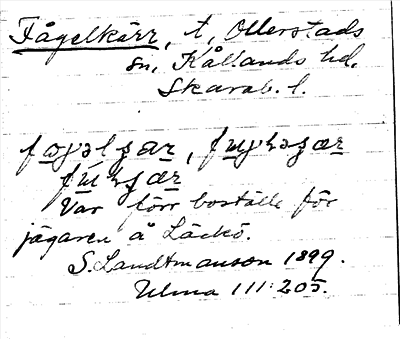 Fågelkärr, t, Ollerstads
sn, Kållands hd,
Skarab. l.
Var förr boställe för
jägaren å Läckö.
S. Landtmanson 1899.
Ulma 111:205.